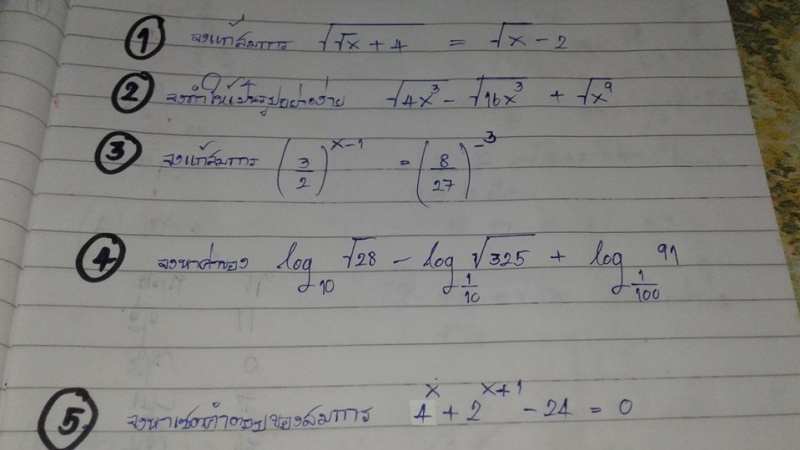 ① จงแก้สมการ √(√x + 4) = √x - 2
② จงทำให้เป็นรูปอย่างง่าย √4x³ - √16x³ + √x⁹
③ จงแก้สมการ (3/2)^(x-1) = (8/27)^(-3)
④ จงหาค่าของ log₁₀ √28 - log_(1/10) √325 + log_(1/100) 91
⑤ จงหาเซตคำตอบของสมการ 4^x + 2^(x+1) - 24 = 0